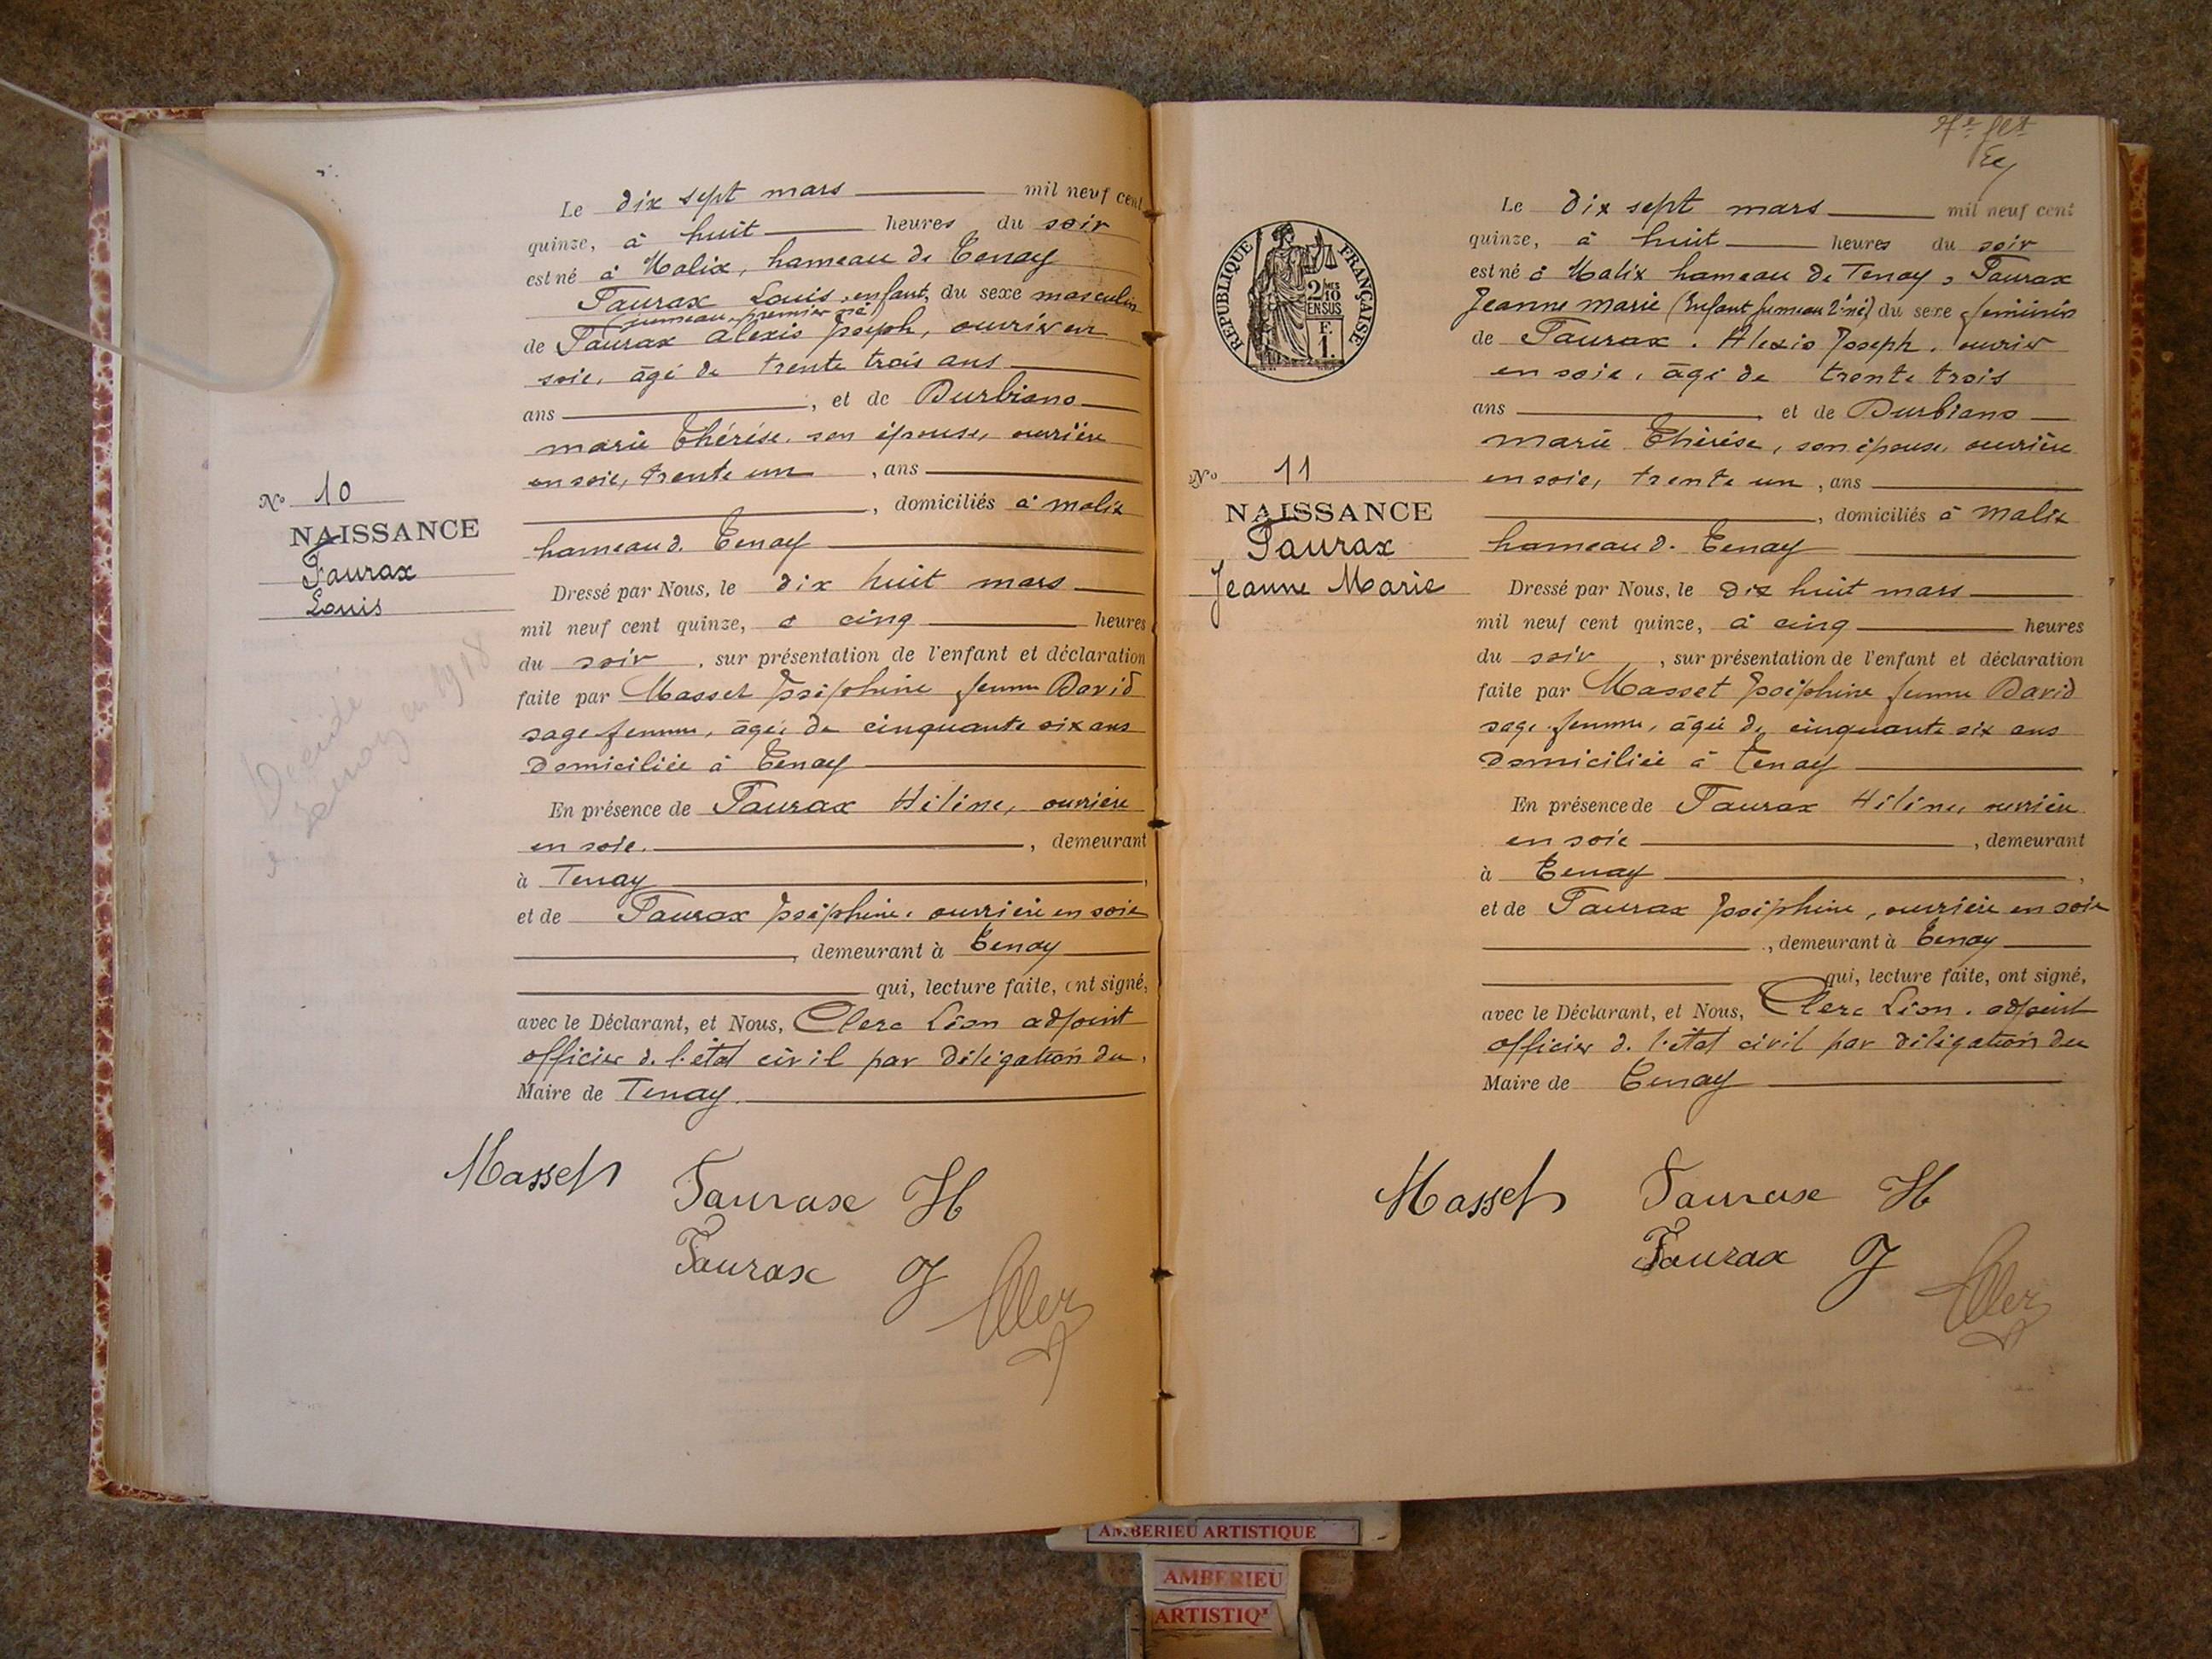 Le dix sept mars mil neuf cent
quinze, à huit heures du soir
est né à Malix, hameau de Tenay
Faurax Louis, enfant, du sexe masculin
(jumeau, premier né)
de Faurax Alexis Joseph, ouvrier en
soie, âgé de trente trois ans
ans , et de Durbiano
marie Thérèse, son épouse, ouvrière
en soie, trente un , ans
, domiciliés à malix
hameau d. Tenay
Dressé par Nous, le dix huit mars
mil neuf cent quinze, à cinq heures
du soir , sur présentation de l'enfant et déclaration
faite par Masset Joséphine femme David
sage-femme, âgée de cinquante six ans
domiciliée à Tenay
En présence de Faurax Hélène, ouvrière
en soie. , demeurant
à Tenay ,
et de Faurax Joséphine, ouvrière en soie
, demeurant à Tenay
qui, lecture faite, ont signé,
avec le Déclarant, et Nous, Clerc Léon adjoint
officier d. l'état civil par délégation du
Maire de Tenay.
Masset Faurax H
Faurax J
Clerc
N° 10
NAISSANCE
Faurax
Louis
Décidé
à Tenay en 1918
Le dix sept mars mil neuf cent
quinze, à huit heures du soir
est né à Malix hameau de Tenay, Faurax
Jeanne Marie (Enfant jumeau 2è né) du sexe féminin
de Faurax. Alexis Joseph, ouvrier
en soie, âgé de trente trois
ans et de Durbiano
marie Thérèse, son épouse, ouvrière
en soie, trente un , ans
, domiciliés à malix
hameau d. Tenay
Dressé par Nous, le dix huit mars
mil neuf cent quinze, à cinq heures
du soir , sur présentation de l'enfant et déclaration
faite par Masset Joséphine femme David
sage-femme, âgée de cinquante six ans
domiciliée à Tenay
En présence de Faurax Hélène, ouvrière
en soie , demeurant
à Tenay ,
et de Faurax Joséphine, ouvrière en soie
, demeurant à Tenay
qui, lecture faite, ont signé,
avec le Déclarant, et Nous, Clerc Léon. adjoint
officier d. l'état civil par délégation du
Maire de Tenay
Masset Faurax H
Faurax J
Clerc
REPUBLIQUE FRANÇAISE
2/10
EN SUS
F.
1.
N° 11
NAISSANCE
Faurax
Jeanne Marie
AMBERIEU ARTISTIQUE
AMBERIEU
ARTISTIQ